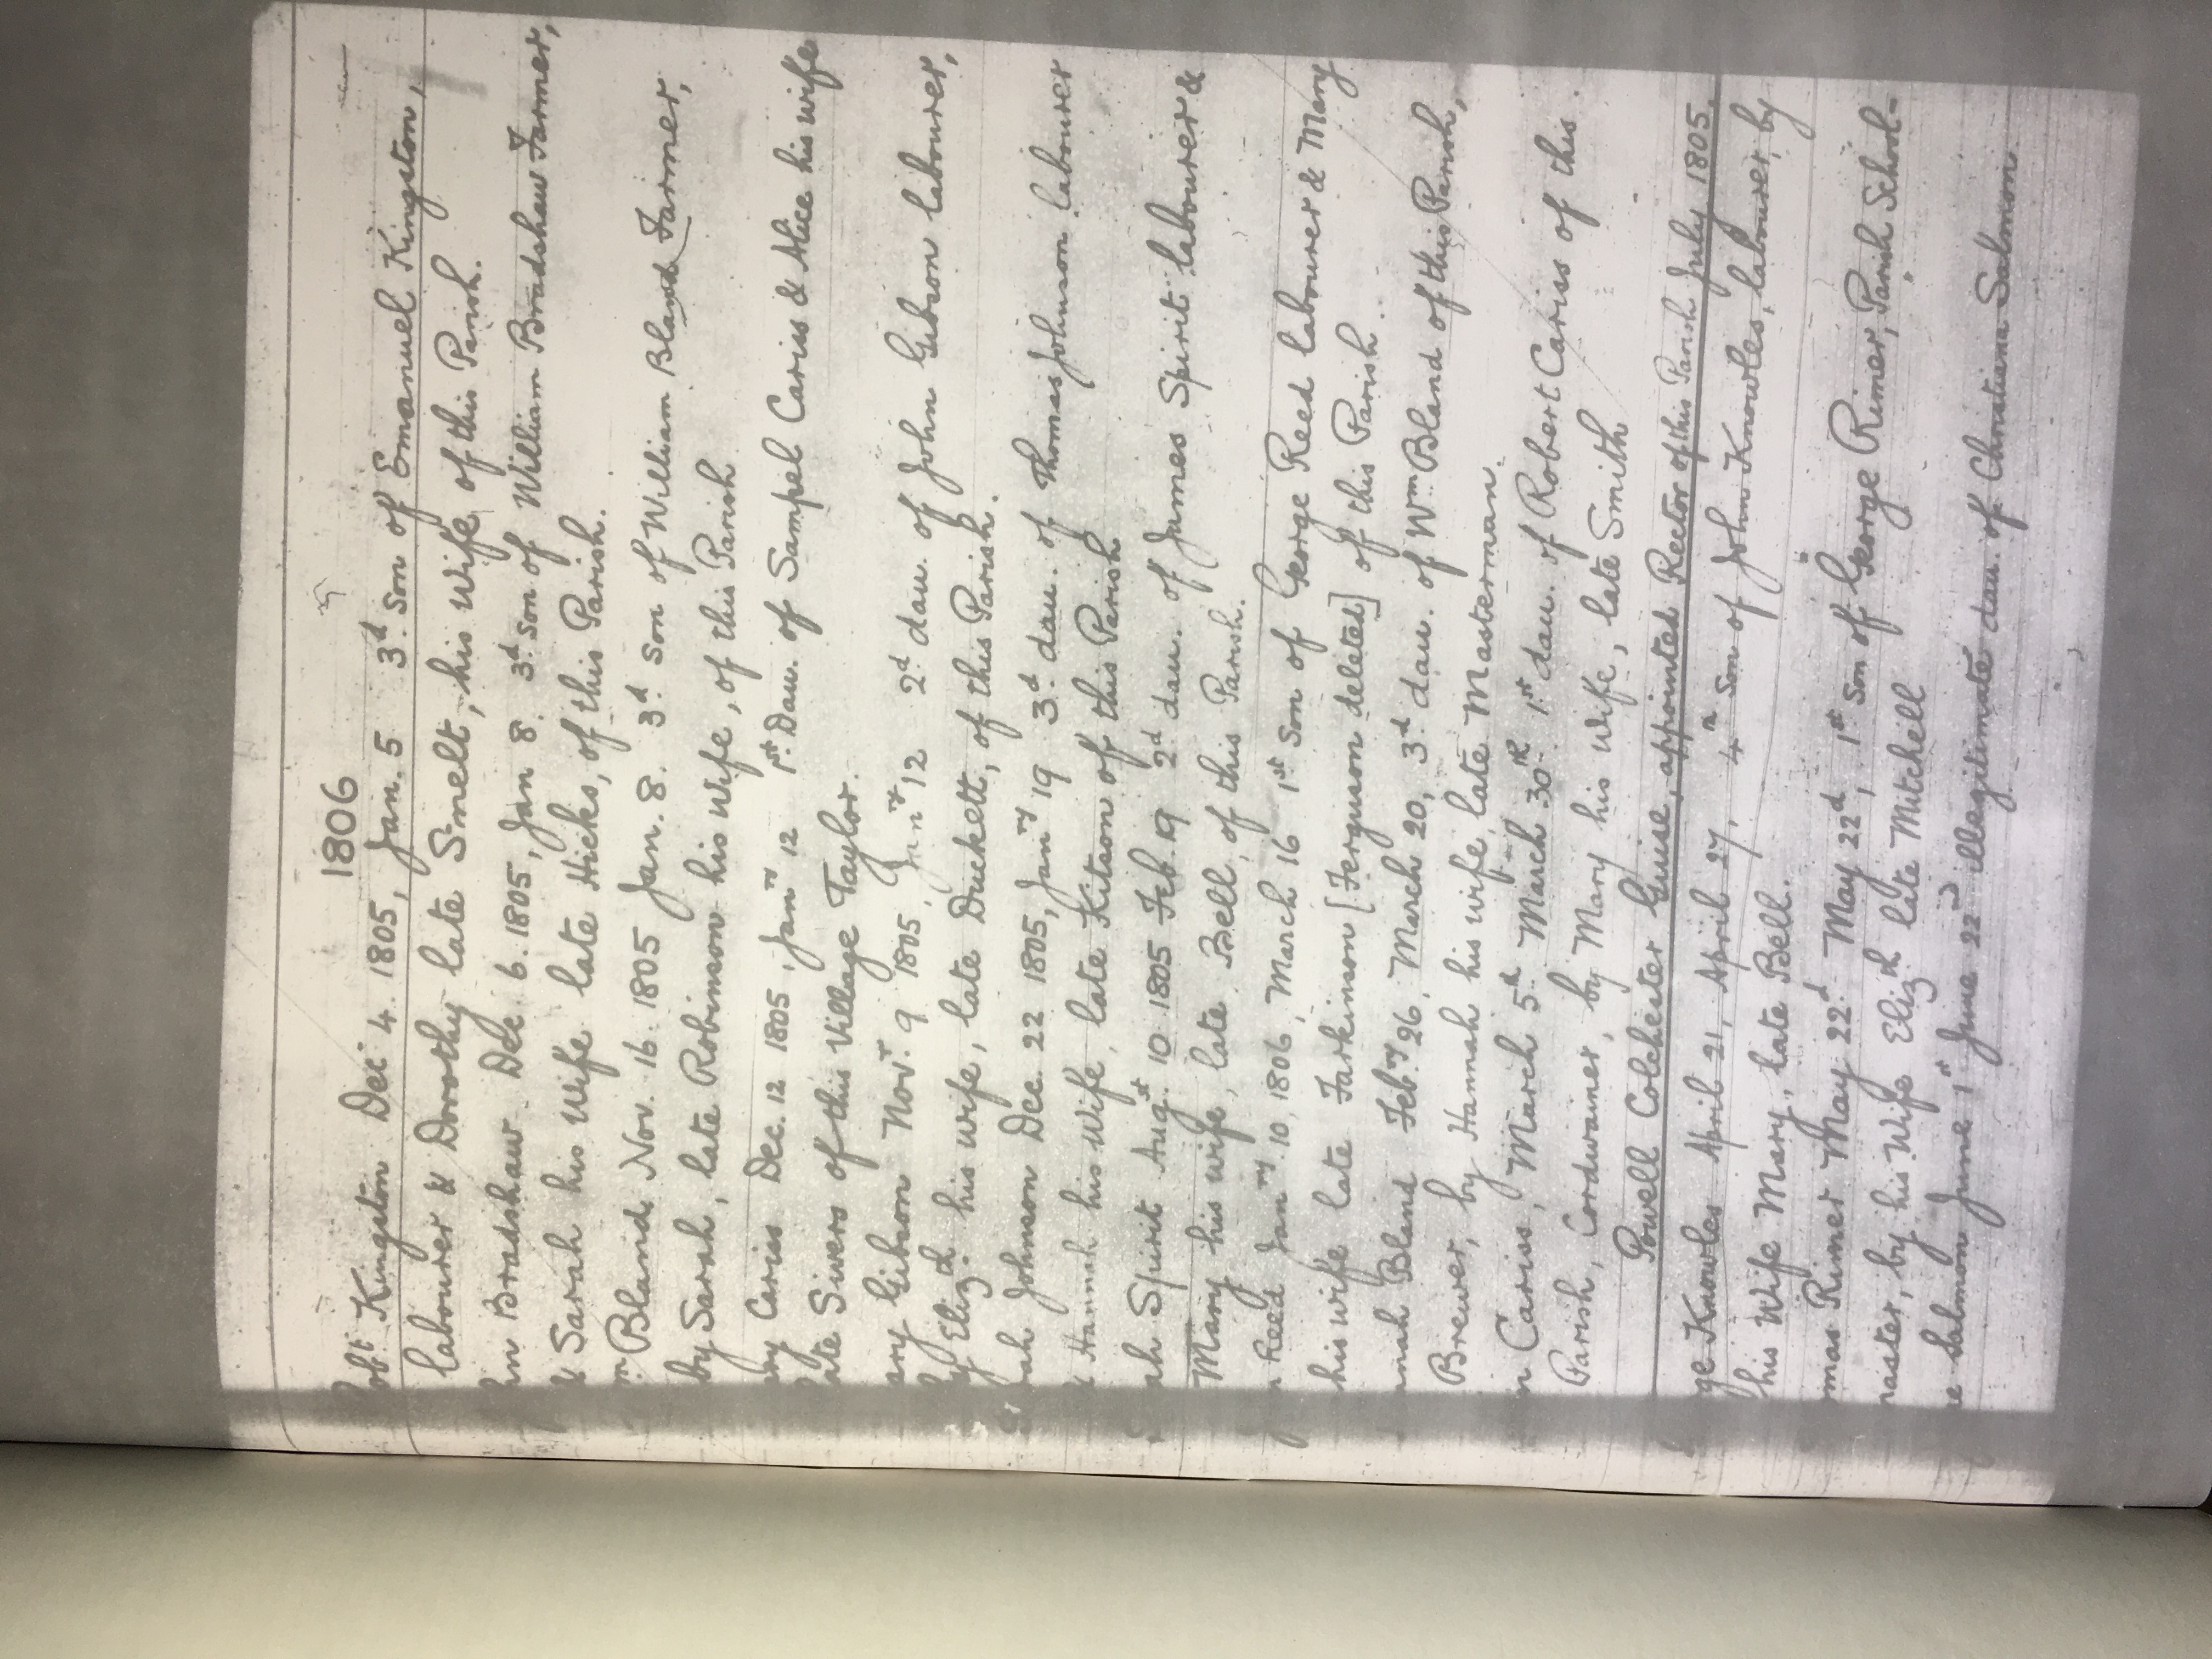 1806
Robt Kingston Dec 4 1805, Jan. 5 3d. son of Emanuel Kingston,
labourer & Dorothy late Smelt, his Wife, of this Parish.
Bradshaw Dec. 6. 1805, Jan 8. 3d. son of William Bradshaw Farmer,
& Sarah his Wife late Hicks, of this Parish.
Bland Nov. 16. 1805 Jan. 8. 3d. son of William Bland Farmer,
by Sarah, late Robinson his Wife, of this Parish
Cariss Dec. 12 1805, Janry 12 1st. Dau. of Sampel Cariss & Alice his wife
late Sivers of this Village Taylor.
Gibson Novr. 9 1805, Janry 12 2d. dau. of John Gibson labourer,
by Elizth. his wife, late Duckett, of this Parish.
Johnson Dec. 22 1805, Janry 19 3d. dau. of Thomas Johnson labourer
& Hannah his Wife, late Kitson of this Parish
Spirit Augst 10 1805 Feb. 19 2d dau. of James Spirit labourer &
Mary his wife, late Bell, of this Parish.
Reed Janry. 10, 1806, March 16 1st son of George Reed labourer & Mary
his wife late Farkinson [Ferguson deleted] of this Parish.
Bland Febry. 26, March 20, 3d dau. of Wm Bland of this Parish,
Brewer, by Hannah his wife, late Masterman.
Cariss, March 5th March 30th. 1st dau. of Robert Cariss of this
Parish, Cordwainer, by Mary his Wife, late Smith
Powell Colchester Guise, appointed Rector of this Parish July 1805.
Knowles April 21, April 27, 4th son of John Knowles, labourer, by
his Wife Mary, late Bell.
Rimer May 22d. May 22d, 1st son of George Rimer, Parish School-
master, by his Wife Elizth late Mitchell
Salmon June 1st June 22d illegitimate dau. of Christiana Salmon